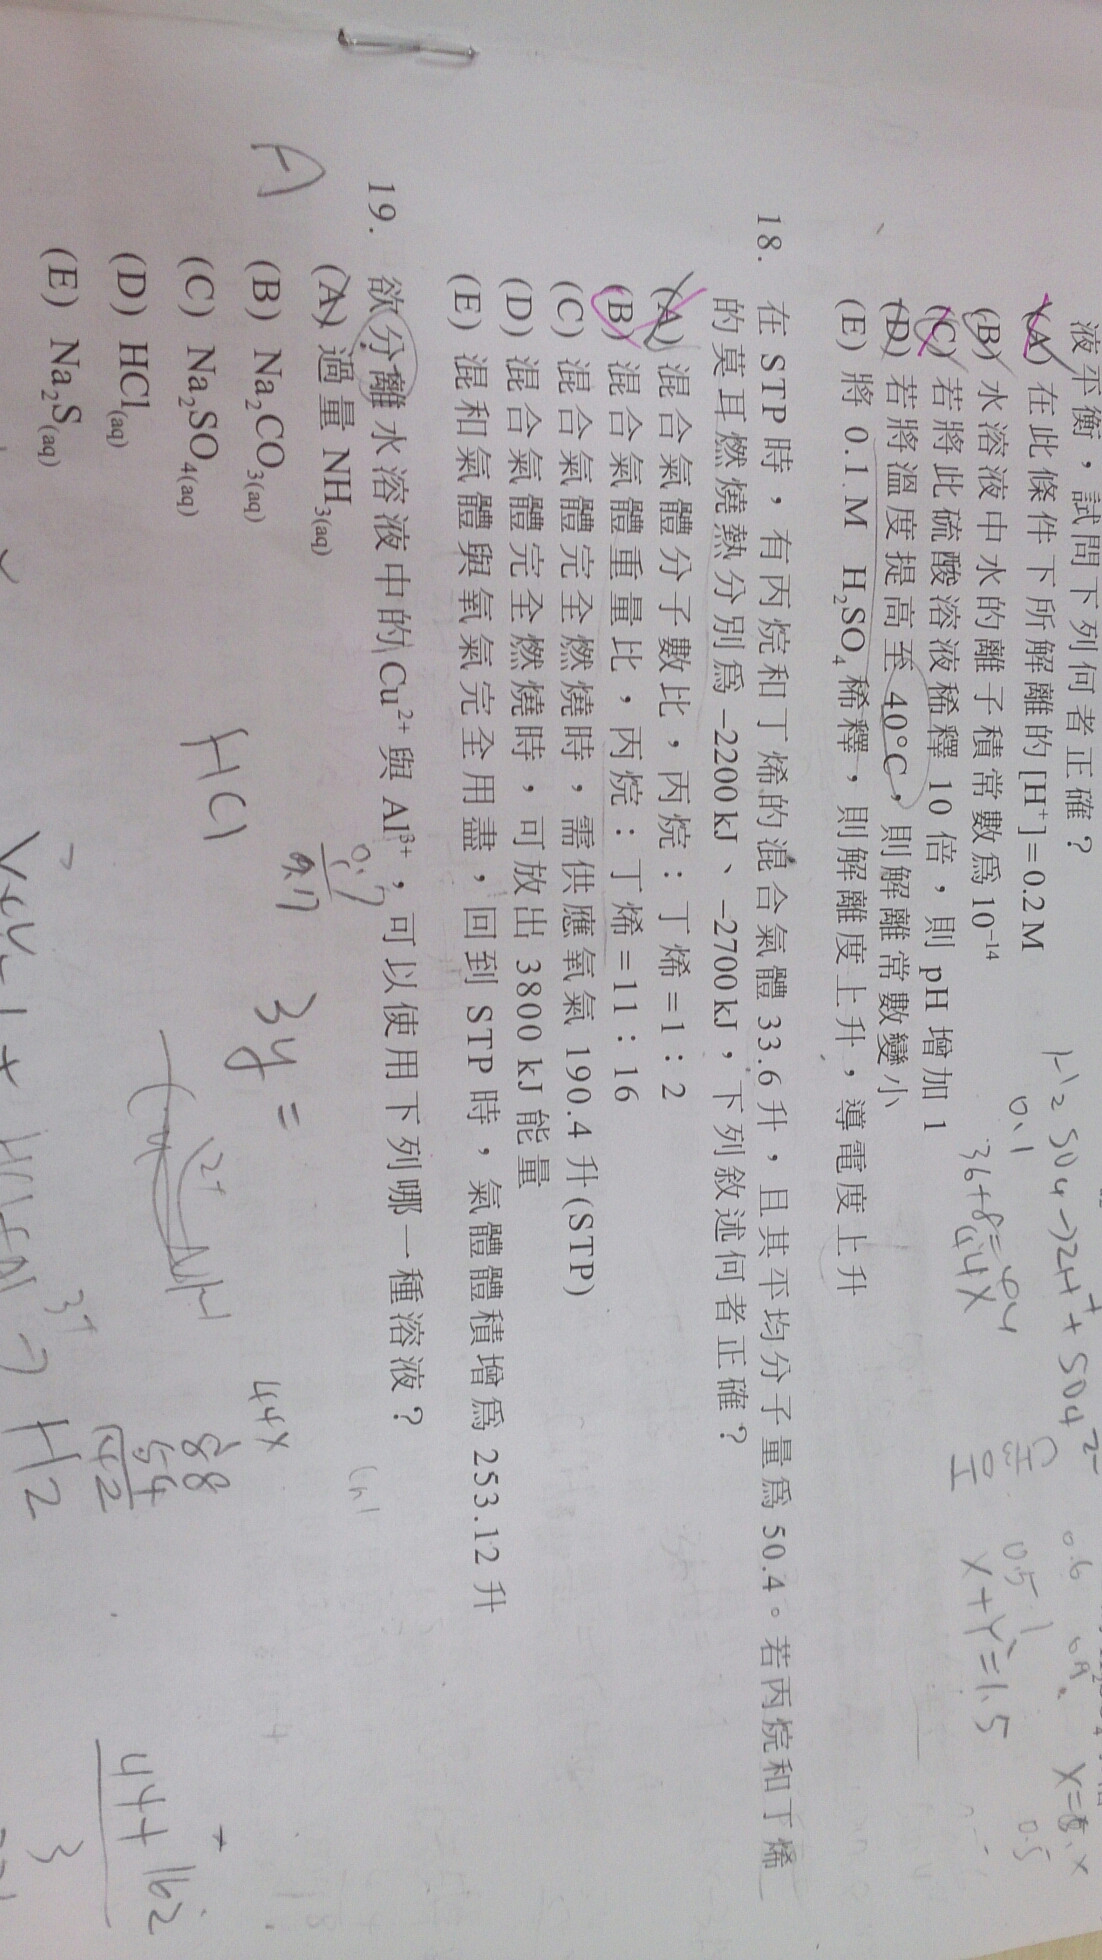 液平衡，試問下列何者正確？
(A) 在此條件下所解離的[H⁺]=0.2 M
(B) 水溶液中水的離子積常數為 10⁻¹⁴
(C) 若將此硫酸溶液稀釋 10 倍，則 pH 增加 1
(D) 若將溫度提高至 40°C，則解離常數變小
(E) 將 0.1 M H₂SO₄稀釋，則解離度上升，導電度上升
H₂SO₄→2H⁺+SO₄²⁻
0.1
0.6
0.5
X+Y=1.5
18. 在 STP 時，有丙烷和丁烯的混合氣體 33.6 升，且其平均分子量為 50.4。若丙烷和丁烯
的莫耳燃燒熱分別為–2200 kJ、–2700 kJ，下列敘述何者正確？
(A) 混合氣體分子數比，丙烷：丁烯=1：2
(B) 混合氣體重量比，丙烷：丁烯=11：16
(C) 混合氣體完全燃燒時，需供應氧氣 190.4 升(STP)
(D) 混合氣體完全燃燒時，可放出 3800 kJ 能量
(E) 混和氣體與氧氣完全用盡，回到 STP 時，氣體體積增為 253.12 升
19. 欲分離水溶液中的 Cu²⁺與 Al³⁺，可以使用下列哪一種溶液？
(A) 過量 NH₃(aq)
(B) Na₂CO₃(aq)
(C) Na₂SO₄(aq)
(D) HCl(aq)
(E) Na₂S(aq)
A
HCl
3y=
44X
88
54
142
H2
44+162
3